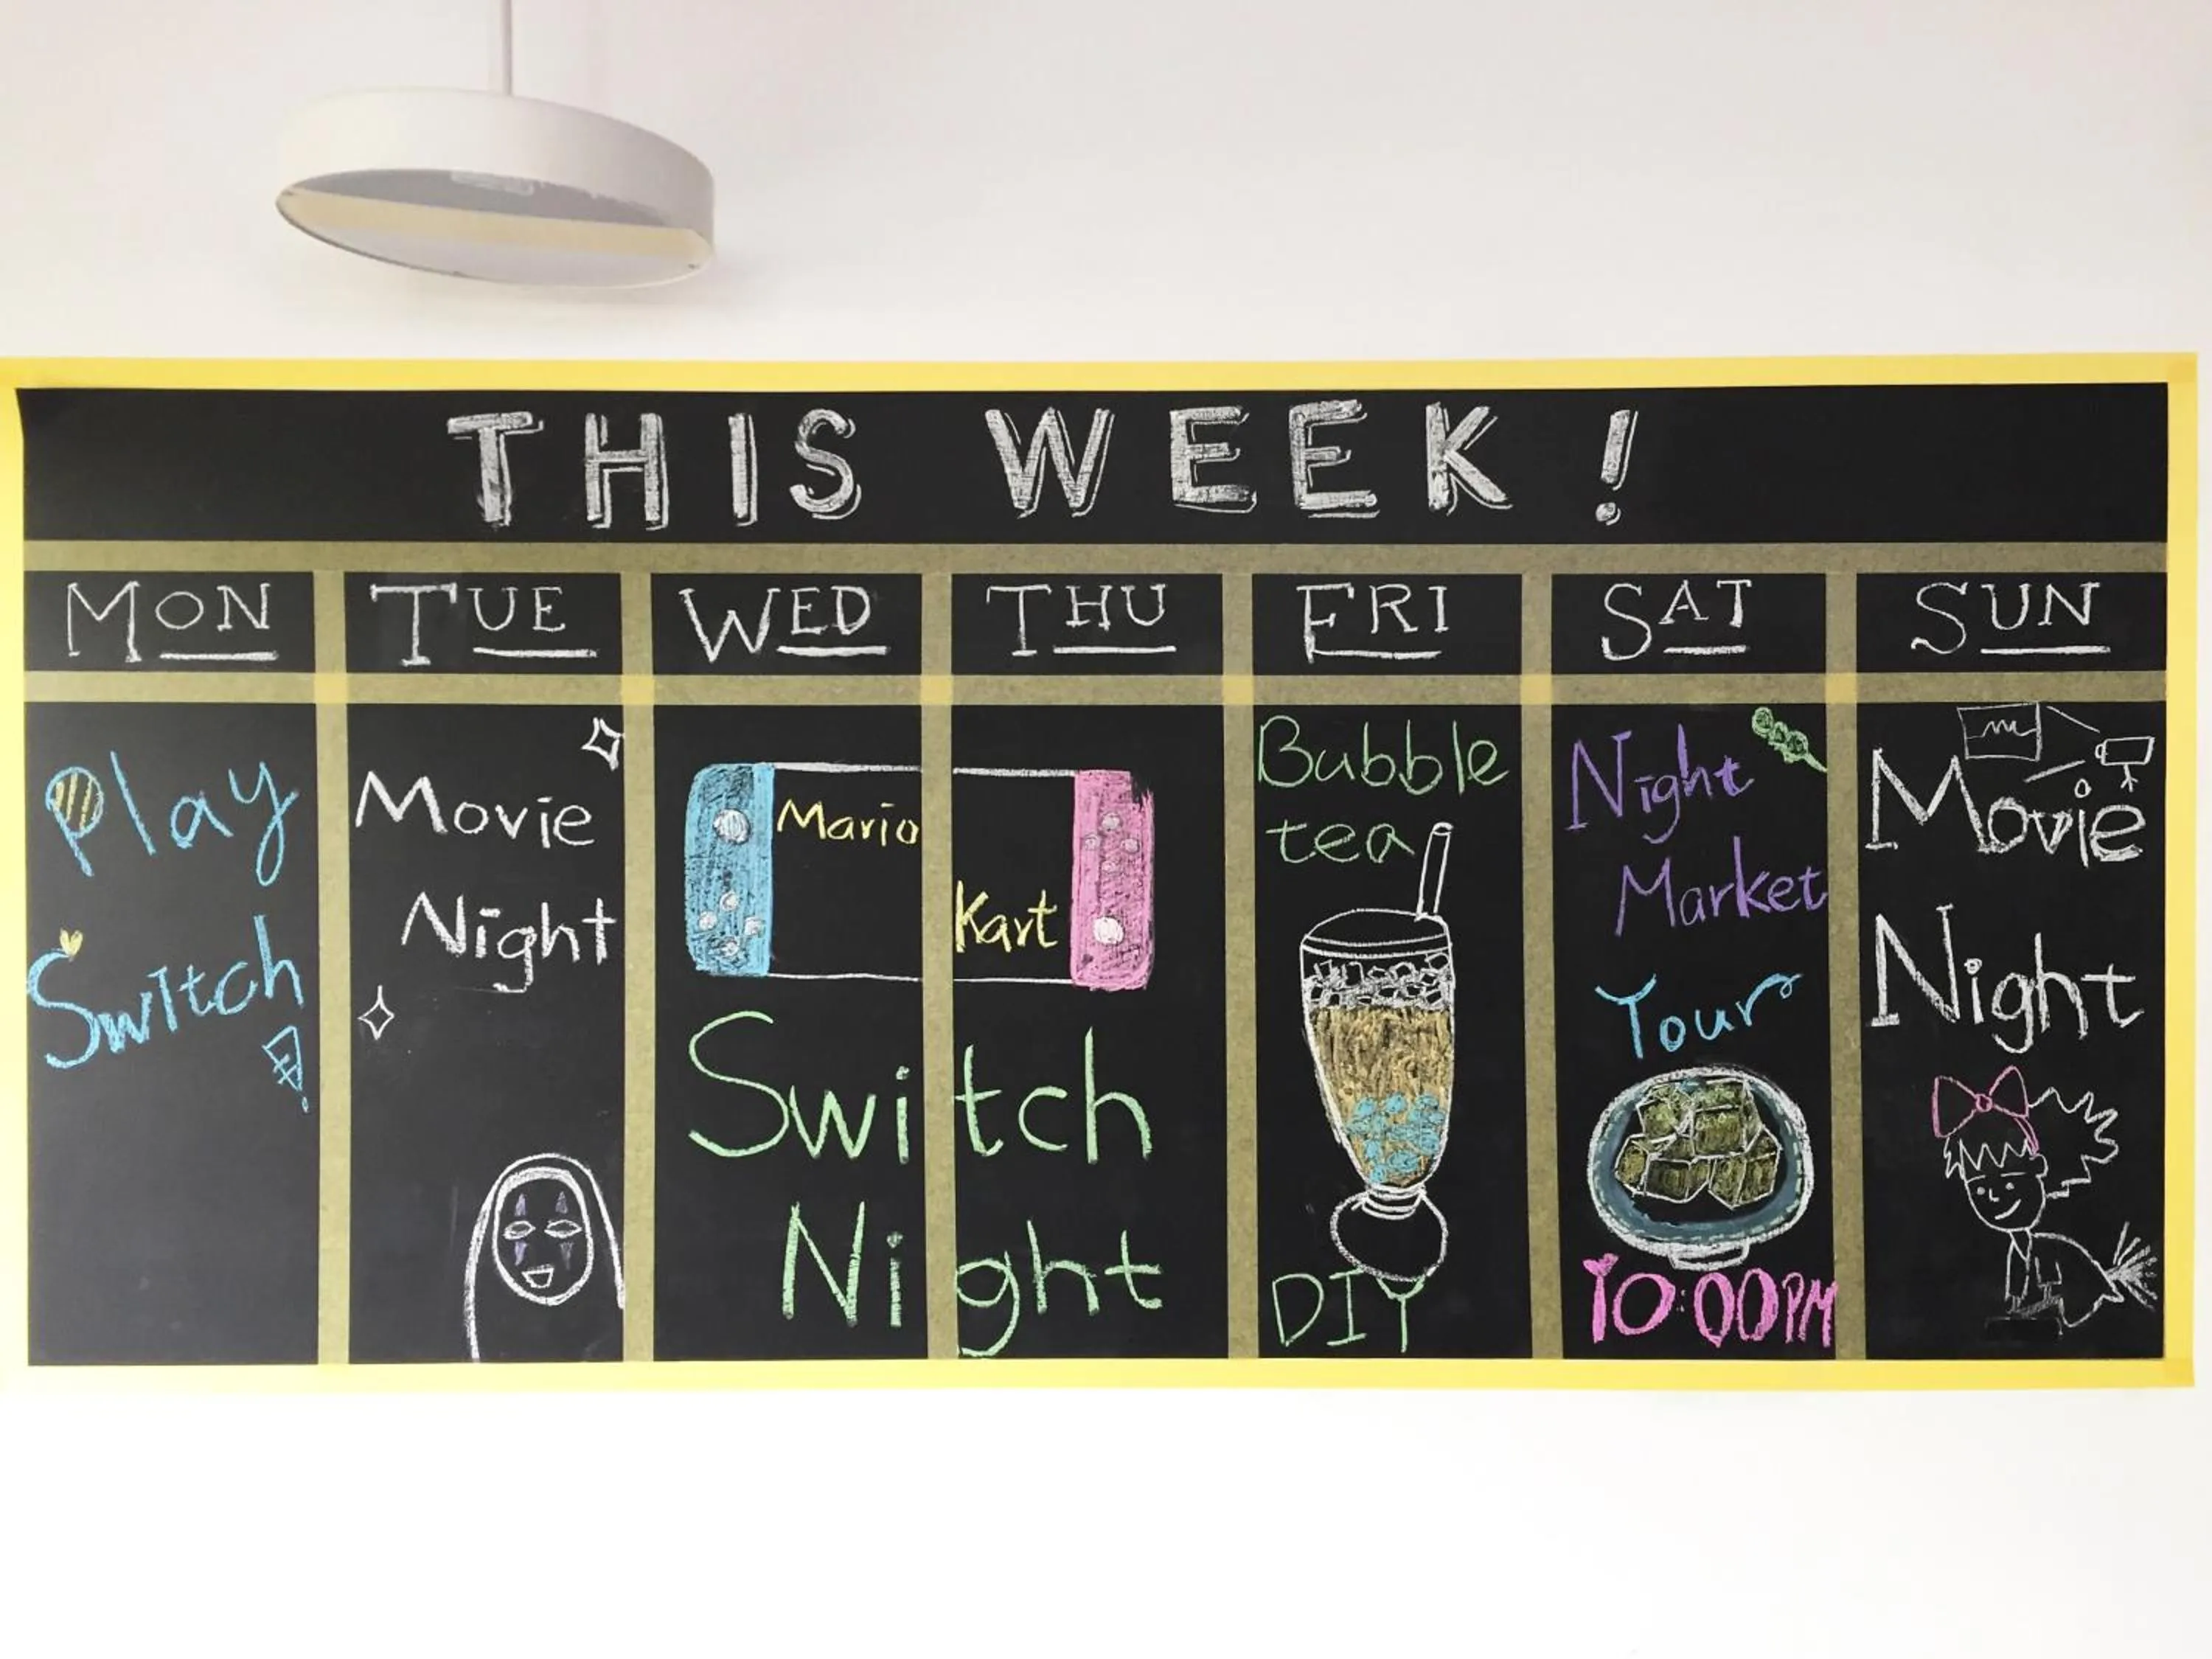 THIS WEEK!
MON
TUE
WED
THU
FRI
SAT
SUN
Play
Switch
!
Movie
Night
Mario
Kart
Switch
Night
Bubble
tea
DIY
Night
Market
Tour
10:00PM
Movie
Night